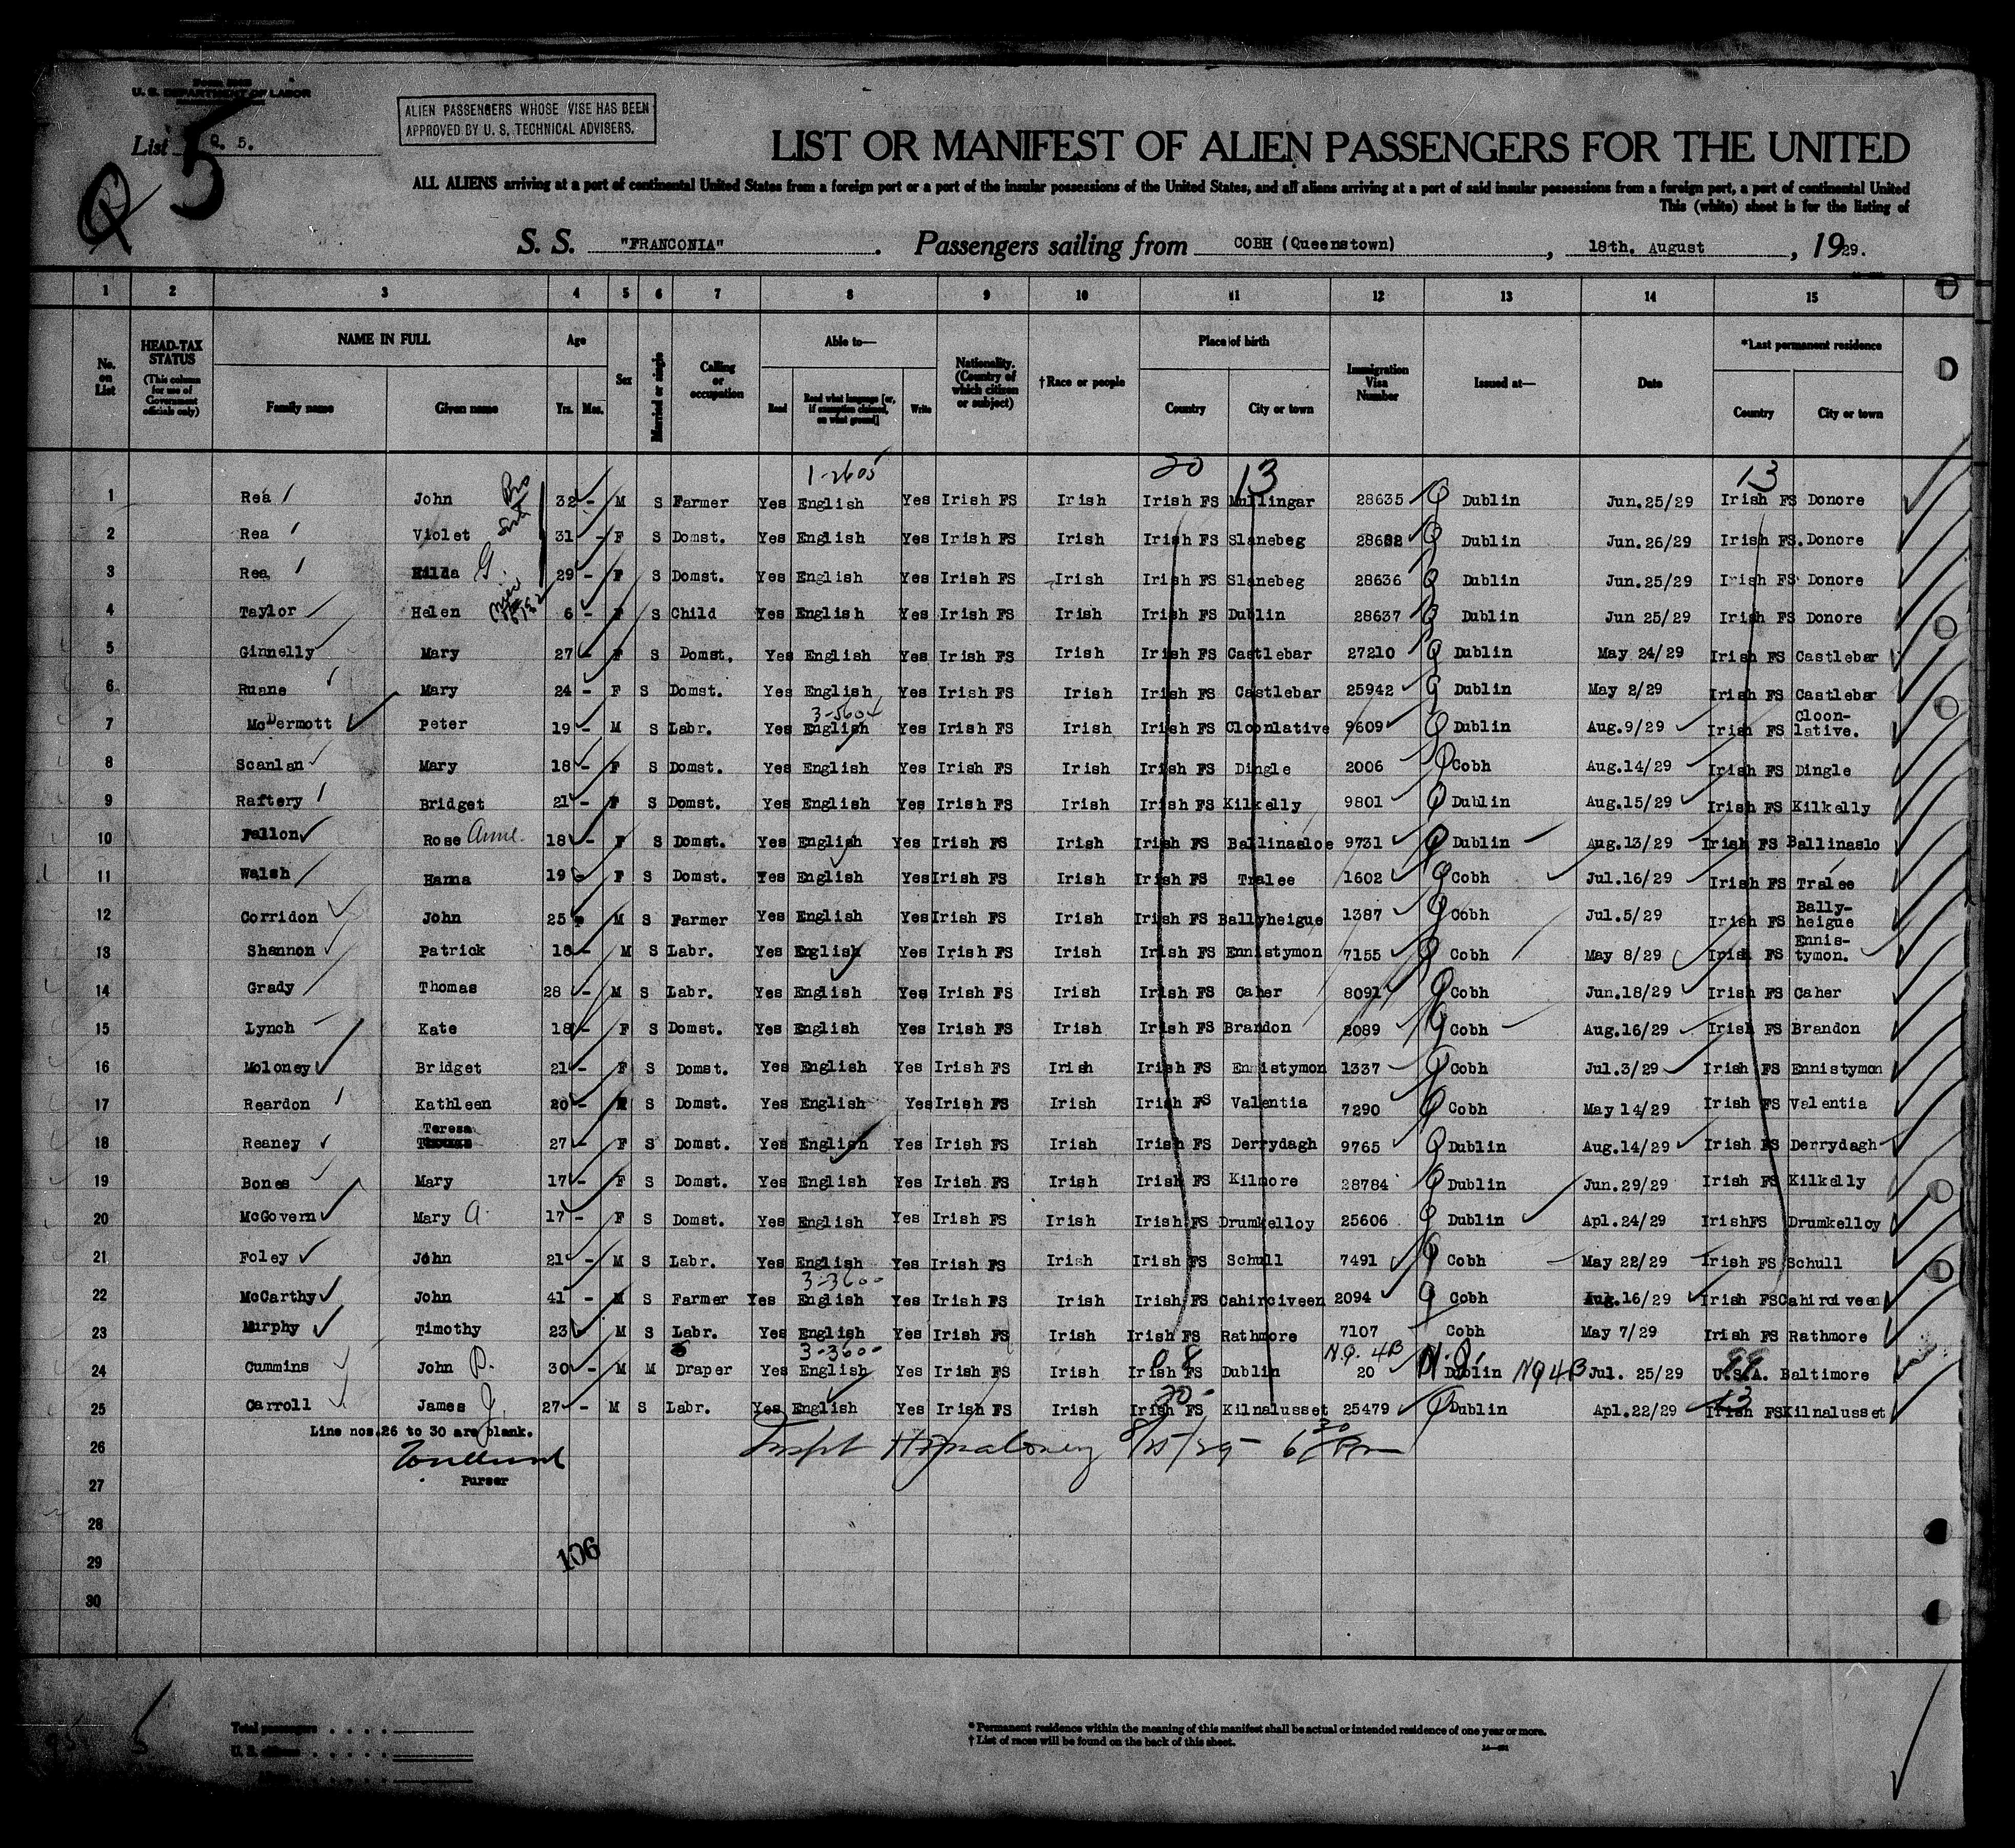 U. S. DEPARTMENT OF LABOR
ALIEN PASSENGERS WHOSE VISE HAS BEEN
APPROVED BY U. S. TECHNICAL ADVISERS.
List Q. 5.
Q 5
LIST OR MANIFEST OF ALIEN PASSENGERS FOR THE UNITED
ALL ALIENS arriving at a port of continental United States from a foreign port or a port of the insular possessions of the United States, and all aliens arriving at a port of said insular possessions from a foreign port, a port of continental United
This (white) sheet is for the listing of
S. S. "FRANCONIA" . Passengers sailing from COBH (Queenstown) , 18th. August , 1929.
1 2 3 4 5 6 7 8 9 10 11 12 13 14 15
No. on List HEAD-TAX STATUS (This column for use of Government officials only) NAME IN FULL Family name Given name Age Yrs. Mos. Sex Married or single Calling or occupation Able to— Read Read what language [or, if exemption claimed, on what ground] Write Nationality. (Country of which citizen or subject) †Race or people Place of birth Country City or town Immigration Visa Number Issued at— Date *Last permanent residence Country City or town
1-2605 20 13 13
1 Rea John Bro 32 - M S Farmer Yes English Yes Irish FS Irish Irish FS Mullingar 28635 Dublin Jun.25/29 Irish FS Donore
2 Rea Violet Sist 31 - F S Domst. Yes English Yes Irish FS Irish Irish FS Slanebeg 28682 Dublin Jun.26/29 Irish FS. Donore
3 Rea Hilda G. 29 - F S Domst. Yes English Yes Irish FS Irish Irish FS Slanebeg 28636 Dublin Jun.25/29 Irish FS Donore
4 Taylor Helen 6 - F S Child Yes English Yes Irish FS Irish Irish FS Dublin 28637 Dublin Jun 25/29 Irish FS Donore
5 Ginnelly Mary 27 - F S Domst. Yes English Yes Irish FS Irish Irish FS Castlebar 27210 Dublin May 24/29 Irish FS Castlebar
6 Ruane Mary 24 - F S Domst. Yes English Yes Irish FS Irish Irish FS Castlebar 25942 Dublin May 2/29 Irish FS Castlebar
3-5604
7 McDermott Peter 19 - M S Labr. Yes English Yes Irish FS Irish Irish FS Cloonlative 9609 Dublin Aug.9/29 Irish FS Cloon-lative.
8 Scanlan Mary 18 - F S Domst. Yes English Yes Irish FS Irish Irish FS Dingle 2006 Cobh Aug.14/29 Irish FS Dingle
9 Raftery Bridget 21 - F S Domst. Yes English Yes Irish FS Irish Irish FS Kilkelly 9801 Dublin Aug.15/29 Irish FS Kilkelly
10 Fallon Rose Anne 18 - F S Domst. Yes English Yes Irish FS Irish Irish FS Ballinasloe 9731 Dublin Aug.13/29 Irish FS Ballinaslo
11 Walsh Hanna 19 - F S Domst. Yes English Yes Irish FS Irish Irish FS Tralee 1602 Cobh Jul.16/29 Irish FS Tralee
12 Corridon John 25 M S Farmer Yes English Yes Irish FS Irish Irish FS Ballyheigue 1387 Cobh Jul.5/29 Irish FS Bally-heigue
13 Shannon Patrick 18 - M S Labr. Yes English Yes Irish FS Irish Irish FS Ennistymon 7155 Cobh May 8/29 Irish FS Ennis-tymon.
14 Grady Thomas 28 - M S Labr. Yes English Yes Irish FS Irish Irish FS Caher 8091 Cobh Jun.18/29 Irish FS Caher
15 Lynch Kate 18 - F S Domst. Yes English Yes Irish FS Irish Irish FS Brandon 2089 Cobh Aug.16/29 Irish FS Brandon
16 Moloney Bridget 21 - F S Domst. Yes English Yes Irish FS Irish Irish FS Ennistymon 1337 Cobh Jul.3/29 Irish FS Ennistymon
17 Reardon Kathleen 20 - S Domst. Yes English Yes Irish FS Irish Irish FS Valentia 7290 Cobh May 14/29 Irish FS Valentia
18 Reaney Teresa 27 - F S Domst. Yes English Yes Irish FS Irish Irish FS Derrydagh 9765 Dublin Aug.14/29 Irish FS Derrydagh
19 Bones Mary 17 - F S Domst. Yes English Yes Irish FS Irish Irish FS Kilmore 28784 Dublin Jun.29/29 Irish FS Kilkelly
20 McGovern Mary A. 17 - F S Domst. Yes English Yes Irish FS Irish Irish FS Drumkelloy 25606 Dublin Apl.24/29 IrishFS Drumkelloy
21 Foley John 21 - M S Labr. Yes English Yes Irish FS Irish Irish FS Schull 7491 Cobh May 22/29 Irish FS Schull
3-360-
22 McCarthy John 41 - M S Farmer Yes English Yes Irish FS Irish Irish FS Cahirciveen 2094 Cobh Aug.16/29 Irish FS Cahirciveen
23 Murphy Timothy 23 M S Labr. Yes English Yes Irish FS Irish Irish FS Rathmore 7107 Cobh May 7/29 Irish FS Rathmore
3-360- 08 N.Q. 4B 99
24 Cummins John P. 30 - M M Draper Yes English Yes Irish FS Irish Irish FS Dublin 20 N.Q. Dublin NQ4B Jul. 25/29 U.S.A. Baltimore
20 13
25 Carroll James J. 27 - M S Labr. Yes English Yes Irish FS Irish Irish FS Kilnalusset 25479 Dublin Apl.22/29 Irish FS Kilnalusset
Line nos.26 to 30 are blank.
26 Inspt Maloney 8/25/29 6 30 Pm
Purser
27
28
29 106
30
5
Total passengers
U. S. citizens
* Permanent residence within the meaning of this manifest shall be actual or intended residence of one year or more.
† List of races will be found on the back of this sheet.